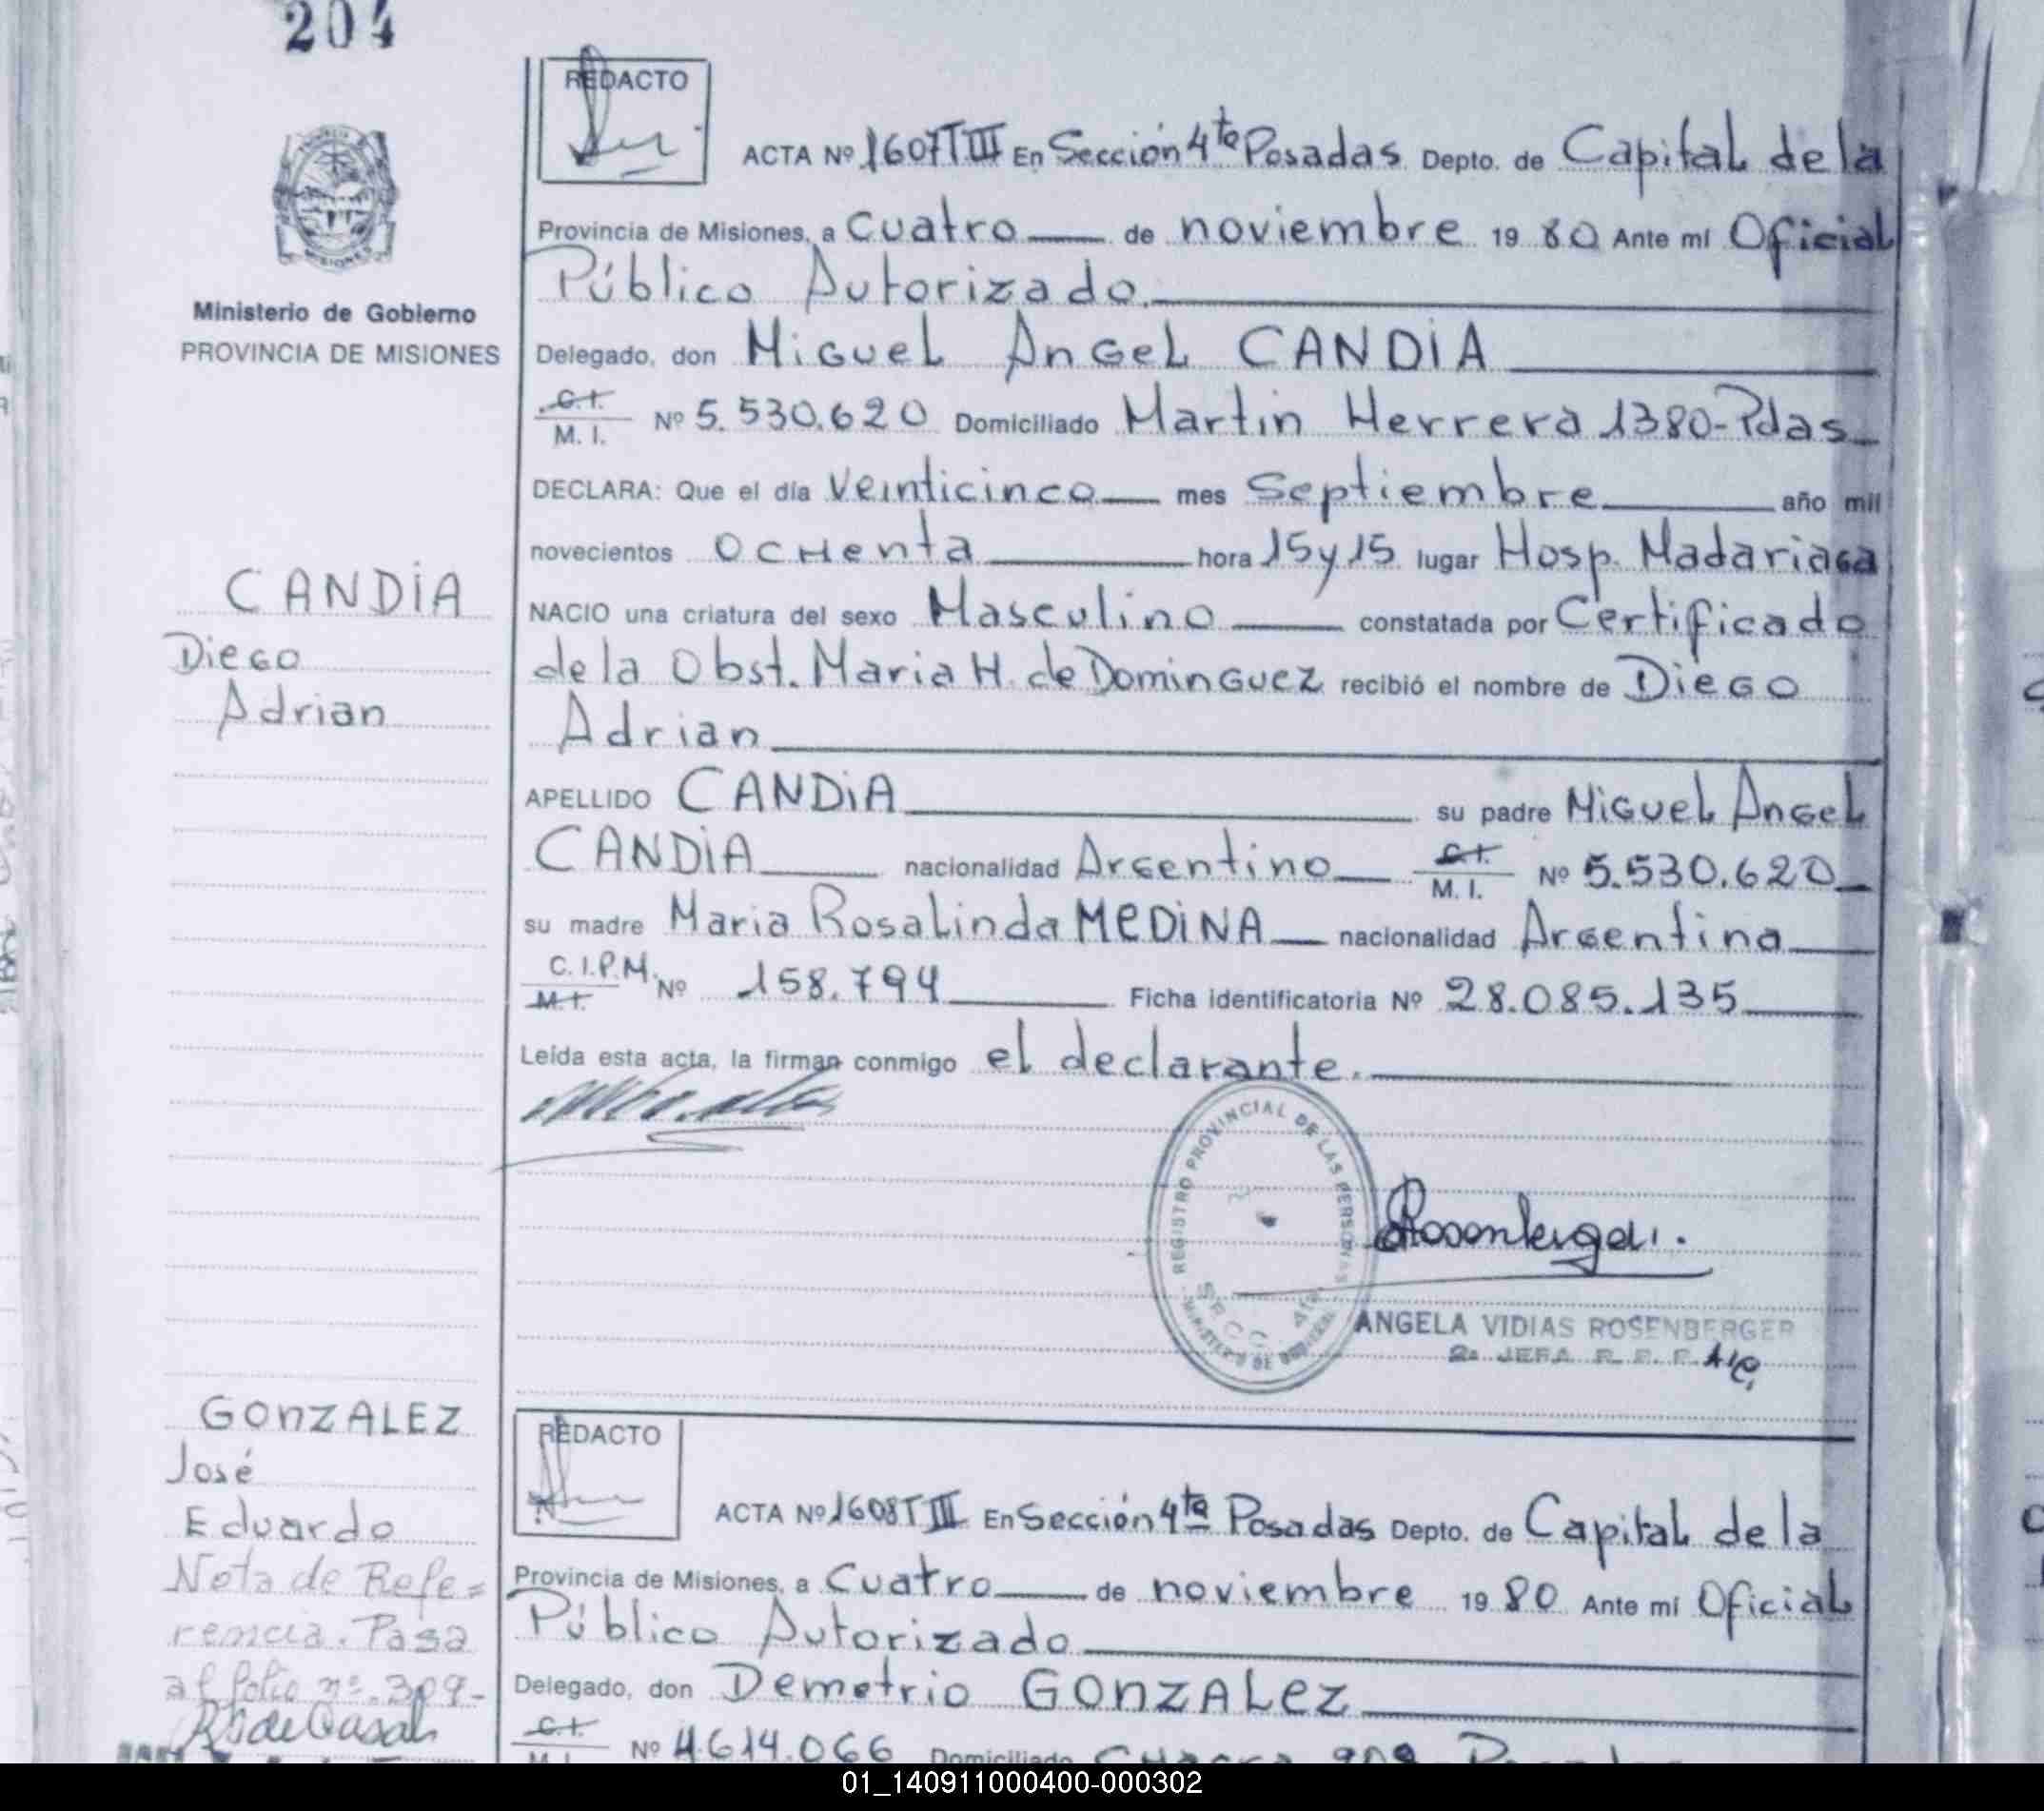 204
REDACTO
ACTA Nº 1607 T III En Sección 4ta Posadas Depto. de Capital de la
Provincia de Misiones, a Cuatro de noviembre 19 80 Ante mí Oficial
Público Autorizado.
Ministerio de Gobierno
PROVINCIA DE MISIONES
Delegado, don Miguel Angel CANDIA
C.I. M. I. Nº 5.530.620 Domiciliado Martin Herrera 1380-Pdas
DECLARA: Que el día Veinticinco mes Septiembre año mil
novecientos ochenta hora 15 y 15 lugar Hosp. Madariaga
CANDIA
Diego
Adrian
NACIO una criatura del sexo Masculino constatada por Certificado
de la Obst. Maria H. de Dominguez recibió el nombre de Diego
Adrian
APELLIDO CANDIA su padre Miguel Angel
CANDIA nacionalidad Argentino C.I. M. I. Nº 5.530.620
su madre Maria Rosalinda MEDINA nacionalidad Argentina
C.I.P.M. M.I. Nº 158.794 Ficha identificatoria Nº 28.085.135
Leída esta acta, la firman conmigo el declarante.
REGISTRO PROVINCIAL DE LAS PERSONAS
Rosenberger
ANGELA VIDIAS ROSENBERGER
2a JEFA
GONZALEZ
José
Eduardo
Nota de Refe=
rencia. Pasa
al folio nº. 309-
R de Casals
REDACTO
ACTA Nº 1608 T III En Sección 4ta Posadas Depto. de Capital de la
Provincia de Misiones, a Cuatro de noviembre 19 80 Ante mí Oficial
Público Autorizado
Delegado, don Demetrio GONZALEZ
C.I. M. I. Nº 4.614.066 Domiciliado
01_140911000400-000302